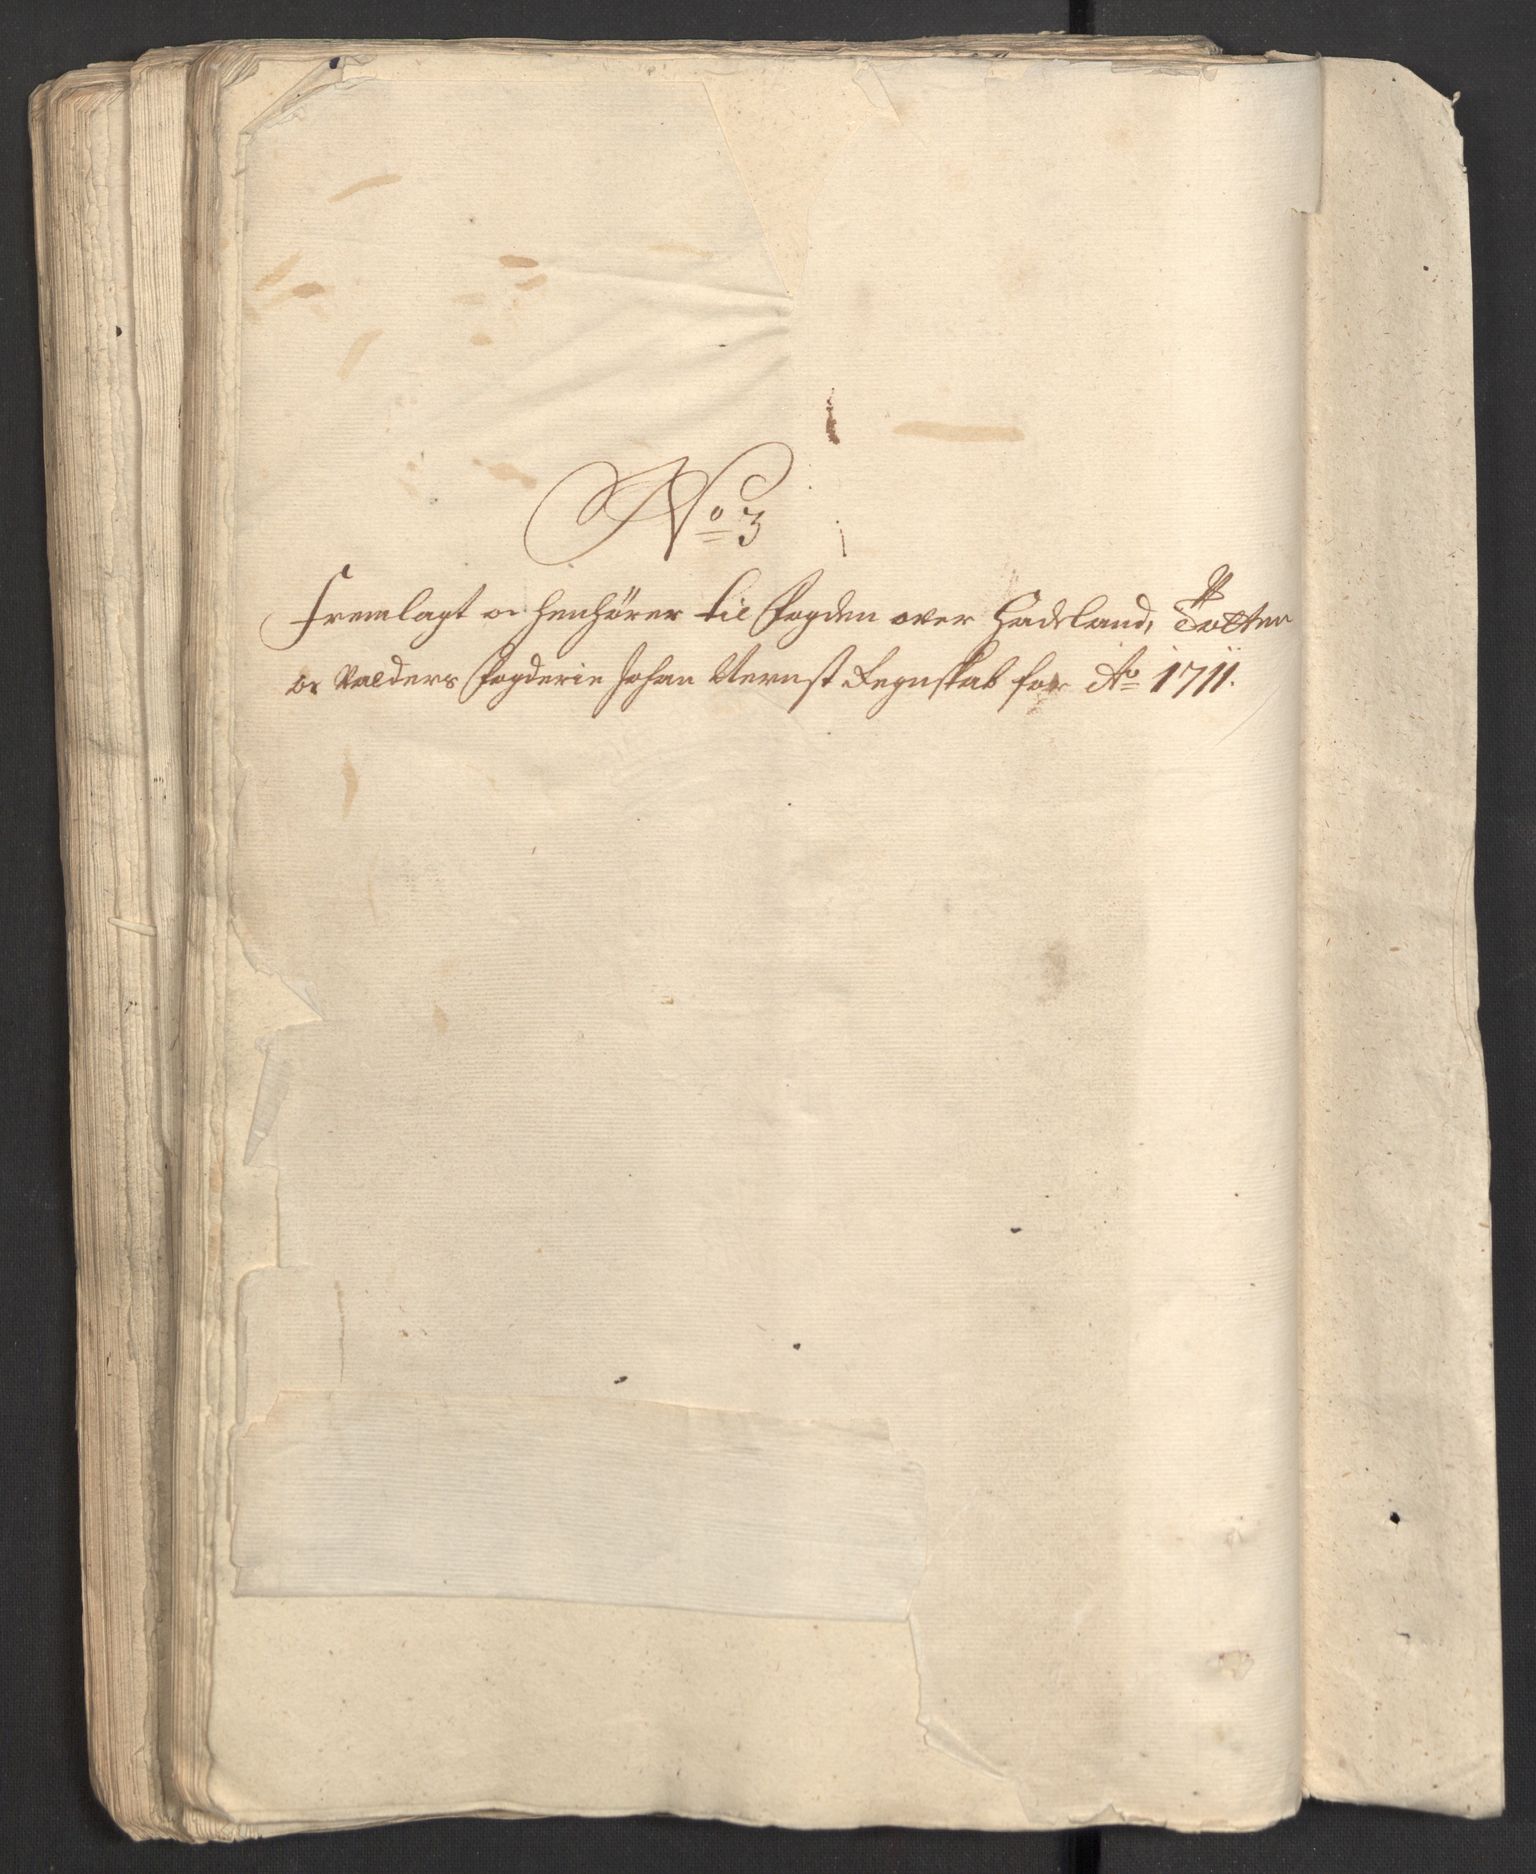 No 3
Fremlagt oc henhører til Fogden over Hadeland, Totten
oc Valders Fogderie Johan Wernst Regnskab for Ao 1711.